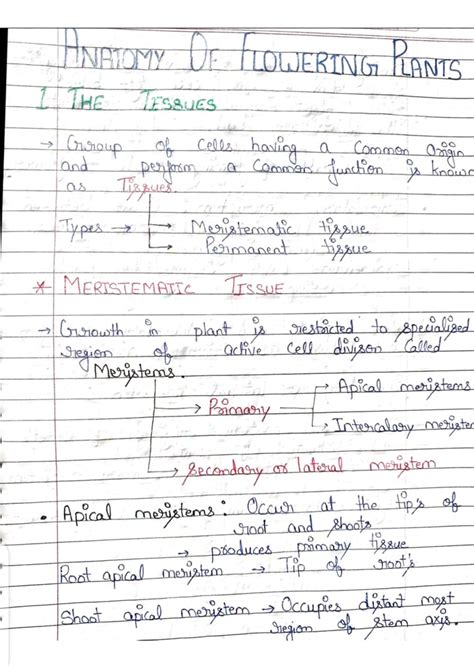 ANATOMY OF FLOWERING PLANTS
1. THE TESSUES
→ Group of cells having a common origin
and perform a common function is known
as Tissues.
Types → → Meristematic tissue
→ Permanent tissue
* MERISTEMATIC TISSUE
→ Growth in plant is restricted to specialised
region of active cell divison called
Meristems.
→ Primary → Apical meristems
→ Intercalary meristem
→ Secondary or lateral meristem
• Apical meristems: Occur at the tip's of
root and shoots
→ produces primary tissue
Root apical meristem → Tip of root's
Shoot apical meristem → Occupies distant most
region of stem axis.